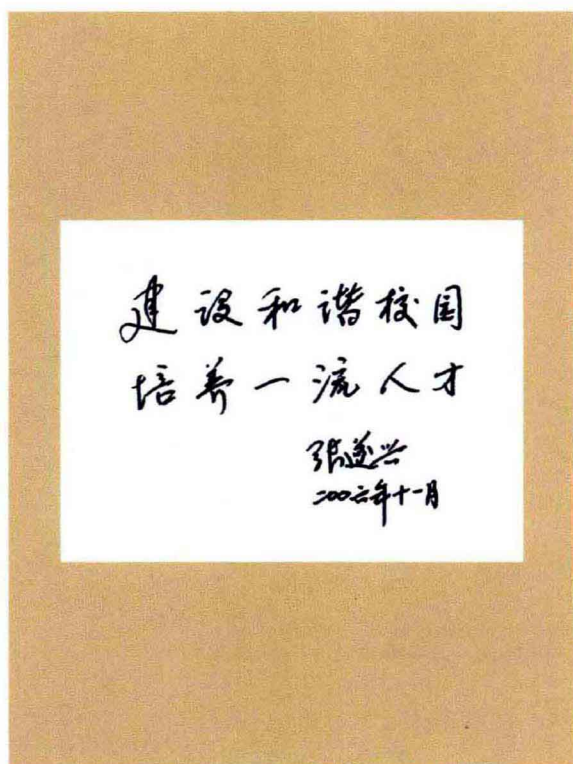 建设和谐校园
培养一流人才
张遂兴
二〇〇六年十一月